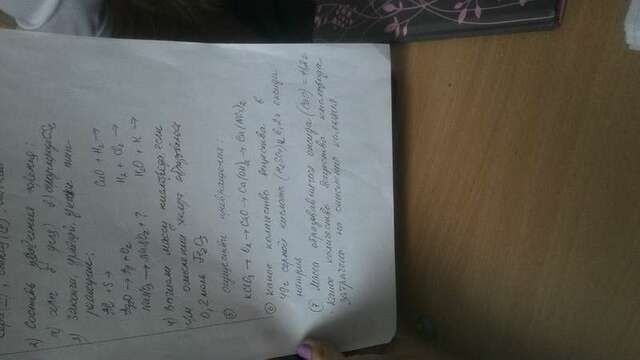 2) Составь уравнения горения:
3) Закончи уравн, укажи тип
реакции:
Al + S →
CuO + H₂ →
Ag₂O → Ag + O₂
H₂ + Cl₂ →
NaNO₃ → NaNO₂ + ?
H₂O + K →
4) Вычисли массу кислорода, если
при окислении железа образовалось
0,2 моль Fe₂O₃
5 осуществи превращения:
KClO₃ → O₂ → CaO → Ca(OH)₂ → Ca(NO₃)₂
6 Какое количество вещества в
49г серной кислоты (H₂SO₄), 6,2г оксида
натрия
7 Масса образовавшегося оксида (CaO) =
Какое количество вещества кислорода
затрачено на окисление кальция.